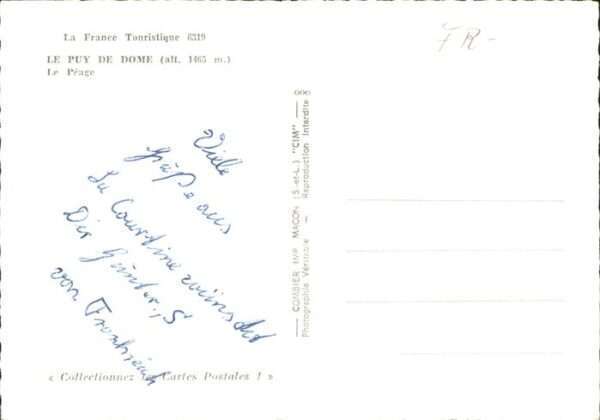 La France Touristique 6319
LE PUY DE DOME (alt. 1465 m.)
Le Péage
FR-
Viele
Grüße aus
La Courtine wünscht
Dir Günter, S
von Frankreich
« Collectionnez Cartes Postales ! »
COMBIER IMP. MACON (S.-et-L.) "CIM"
Photographie Véritable - Reproduction Interdite